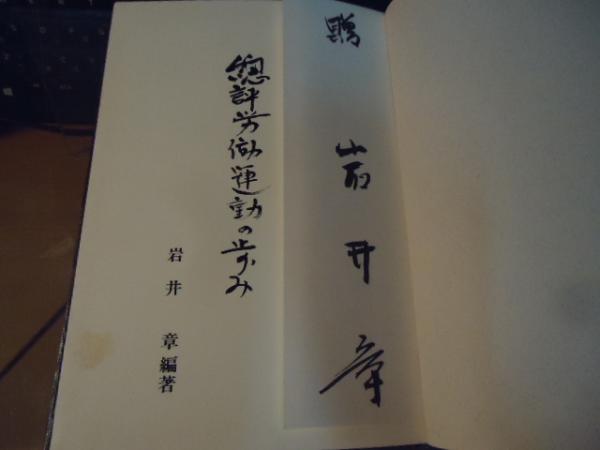 贈
岩井章
總評労働運動の歩み
岩井 章編著